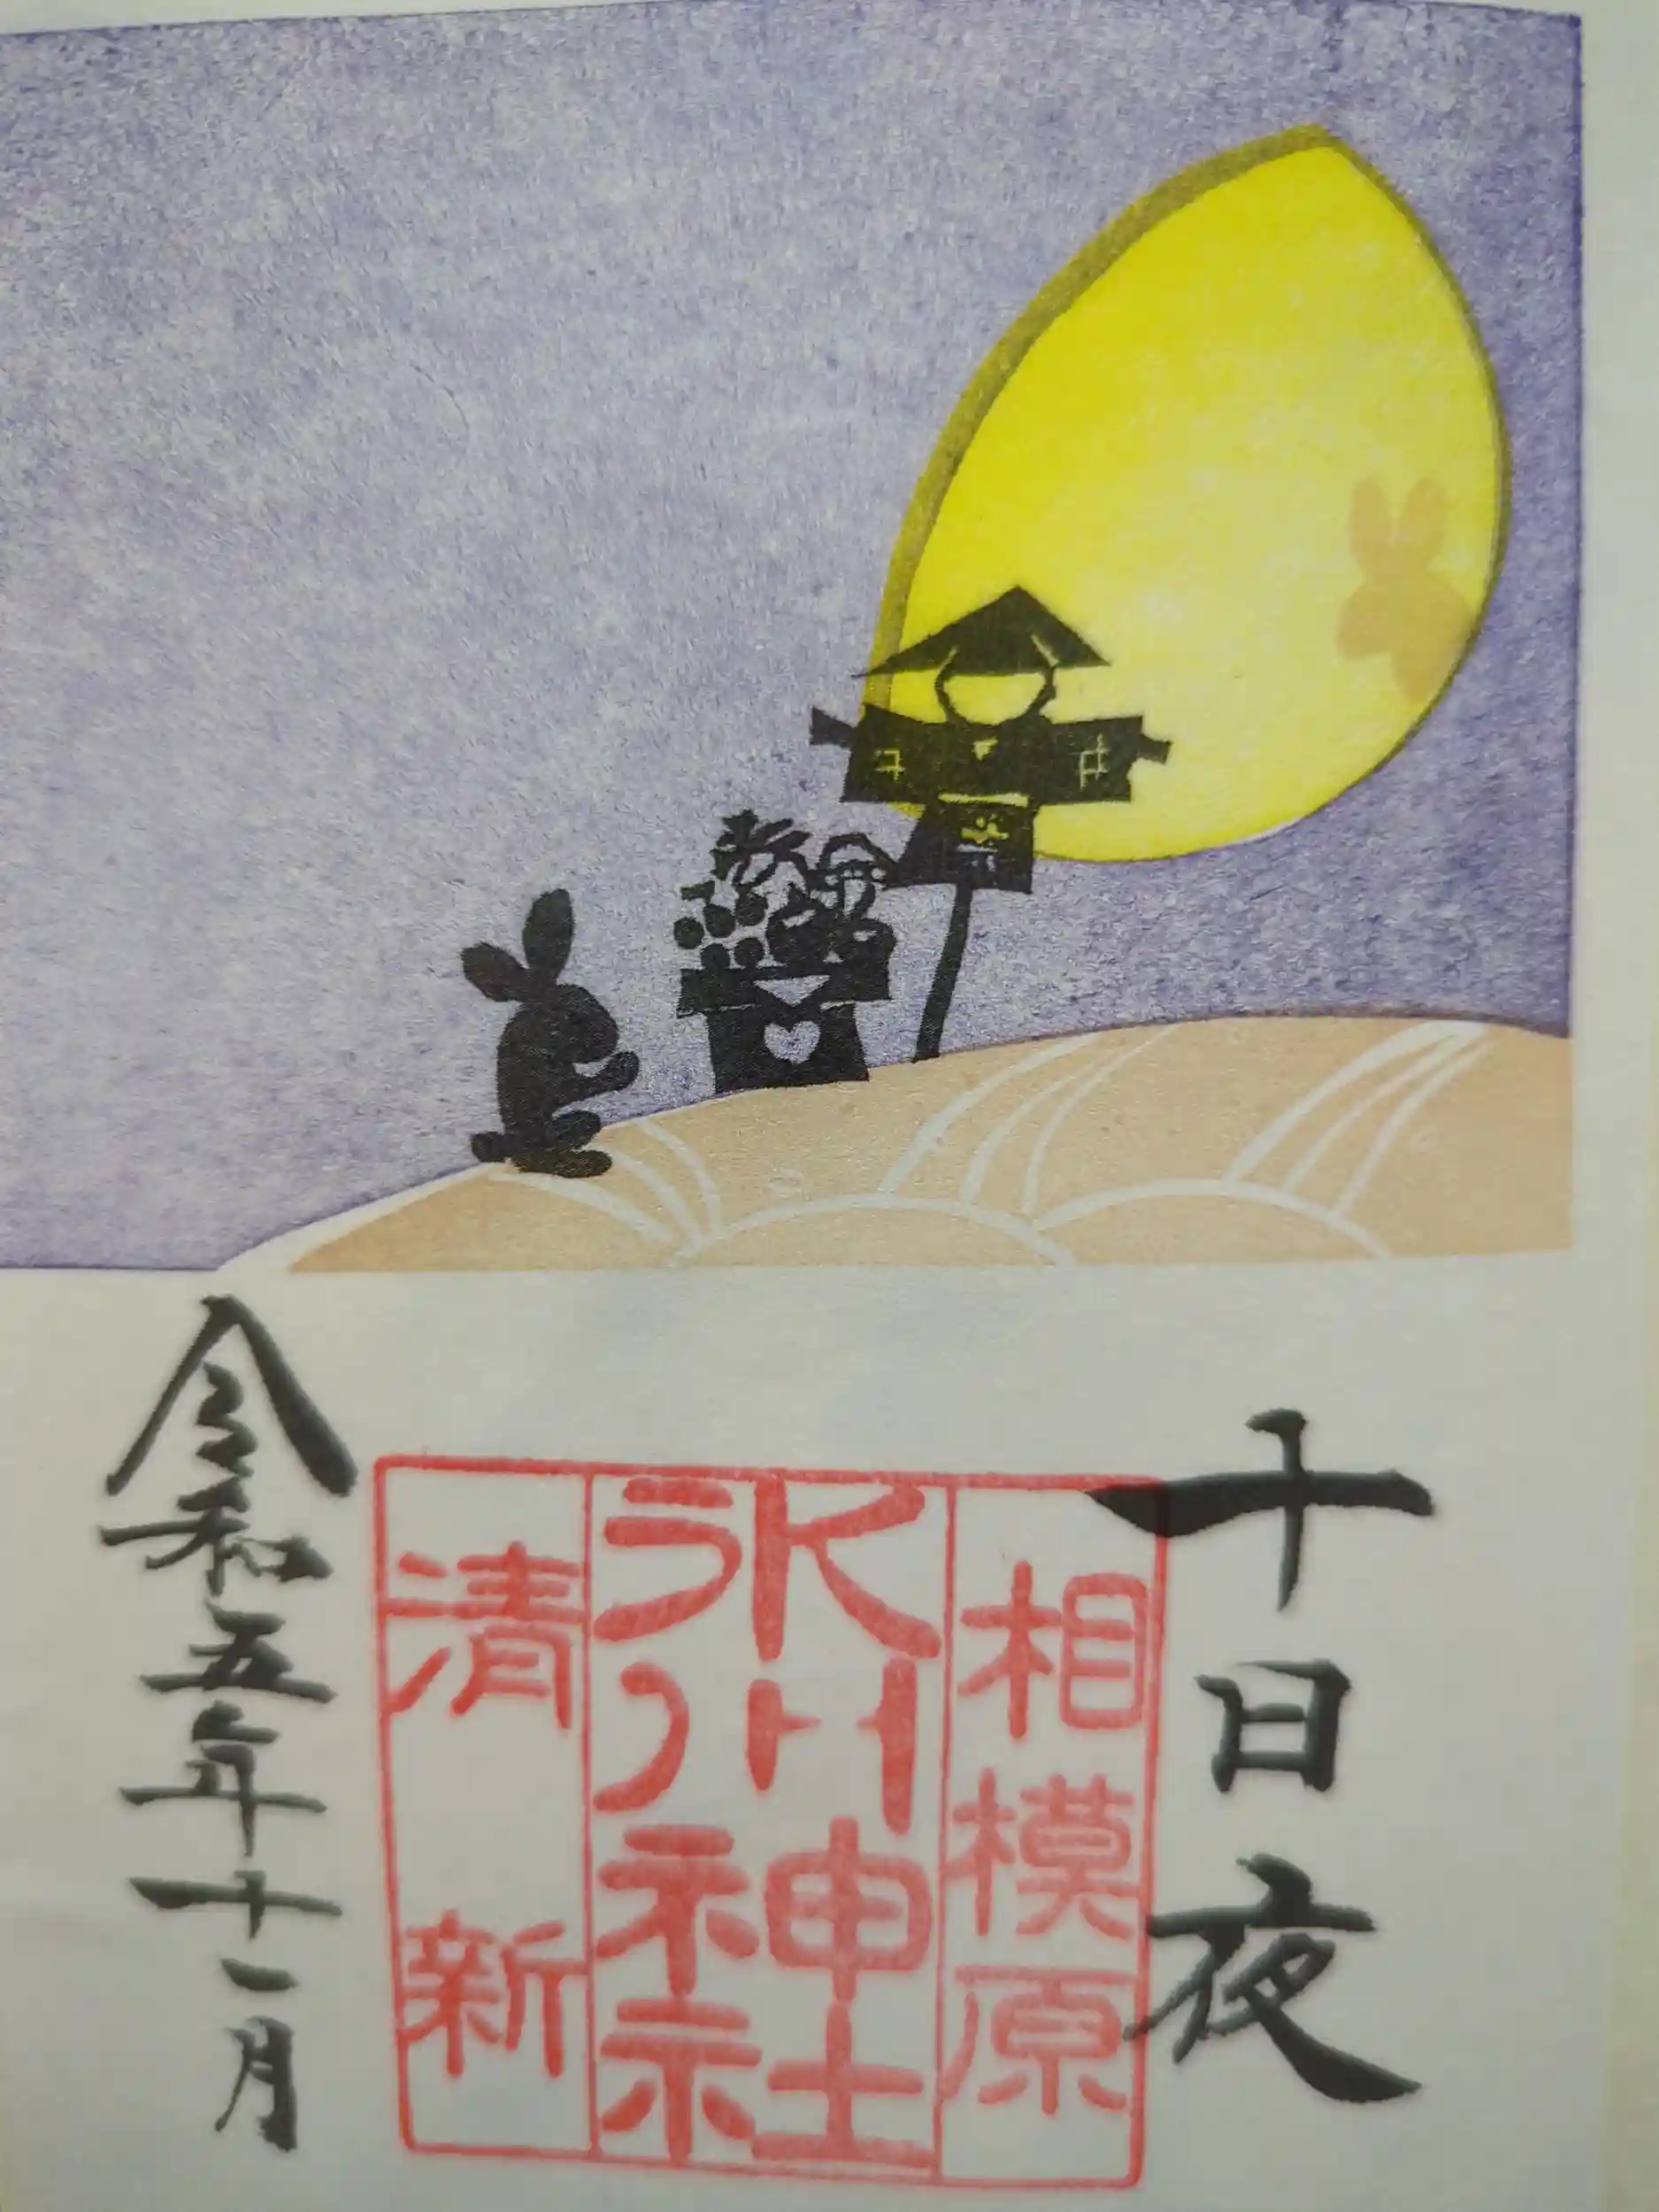 十日夜
相模原
氷川神社
清新
令和五年十一月